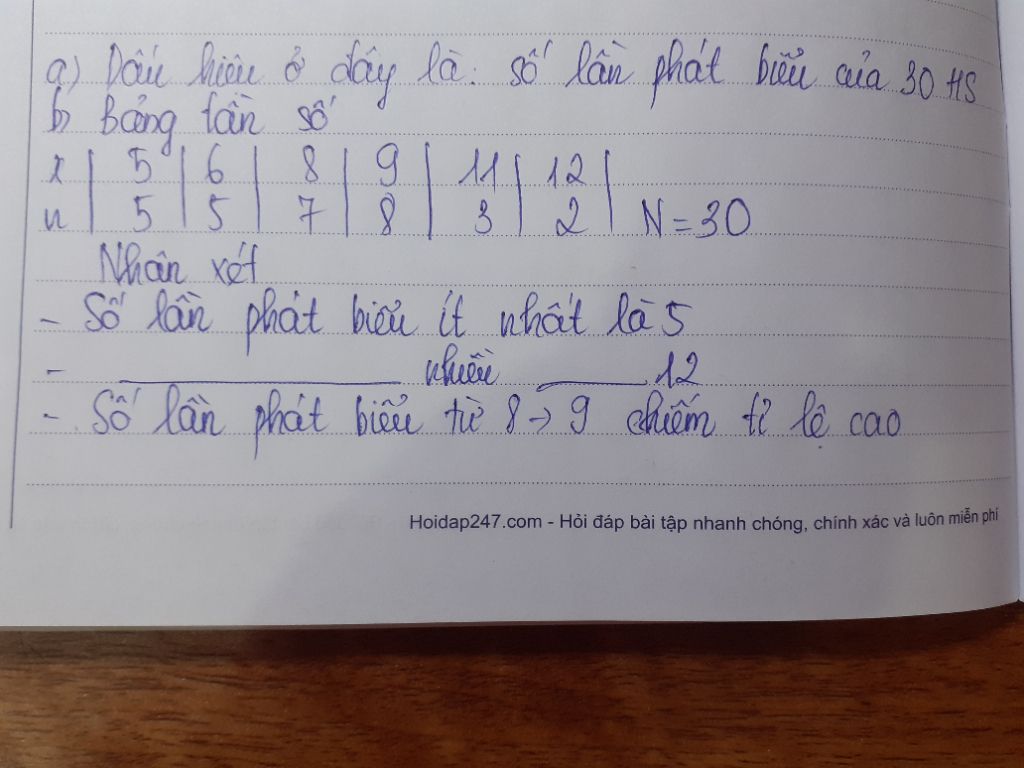 a) Dấu hiệu ở đây là: số lần phát biểu của 30 HS
b) Bảng tần số
x | 5 | 6 | 8 | 9 | 11 | 12 |
n | 5 | 5 | 7 | 8 | 3 | 2 | N = 30
Nhận xét
- Số lần phát biểu ít nhất là 5
- ______ nhiều ______ 12
- Số lần phát biểu từ 8 → 9 chiếm tỉ lệ cao
Hoidap247.com - Hỏi đáp bài tập nhanh chóng, chính xác và luôn miễn phí